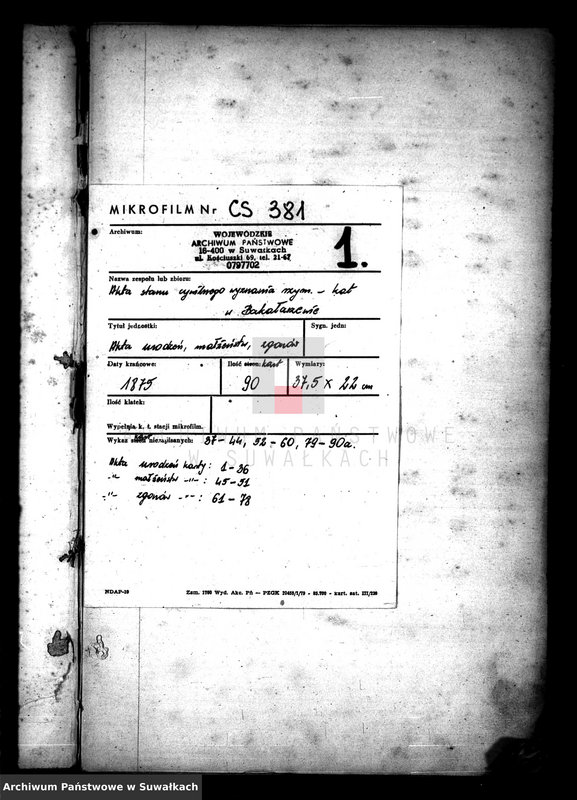 MIKROFILM Nr CS 381
Archiwum:
WOJEWÓDZKIE
ARCHIWUM PAŃSTWOWE
16-400 w Suwałkach
ul. Kościuszki 69, tel. 21-67
0797702
1.
Nazwa zespołu lub zbioru:
Akta stanu cywilnego wyznania rzym. - kat
w Bakałarzewie
Tytuł jednostki:
Sygn. jedn:
Akta urodzeń, małżeństw, zgonów
Daty krańcowe:
Ilość stron: kart
Wymiary:
1875
90
37,5 x 22 cm
Ilość klatek:
Wypełnia k. t. stacji mikrofilm.
ARCHIWUM PAŃSTWOWE
W SUWAŁKACH
Wykaz stron niezapisanych: 37-44, 52-60, 79-90a.
kart
Akta urodzeń karty: 1-36
-"- małżeństw -"-: 45-51
-"- zgonów -"-: 61-78
NDAP-10
Zam. 1700 Wyd. Akc. Pń — PZGK
Archiwum Państwowe w Suwałkach